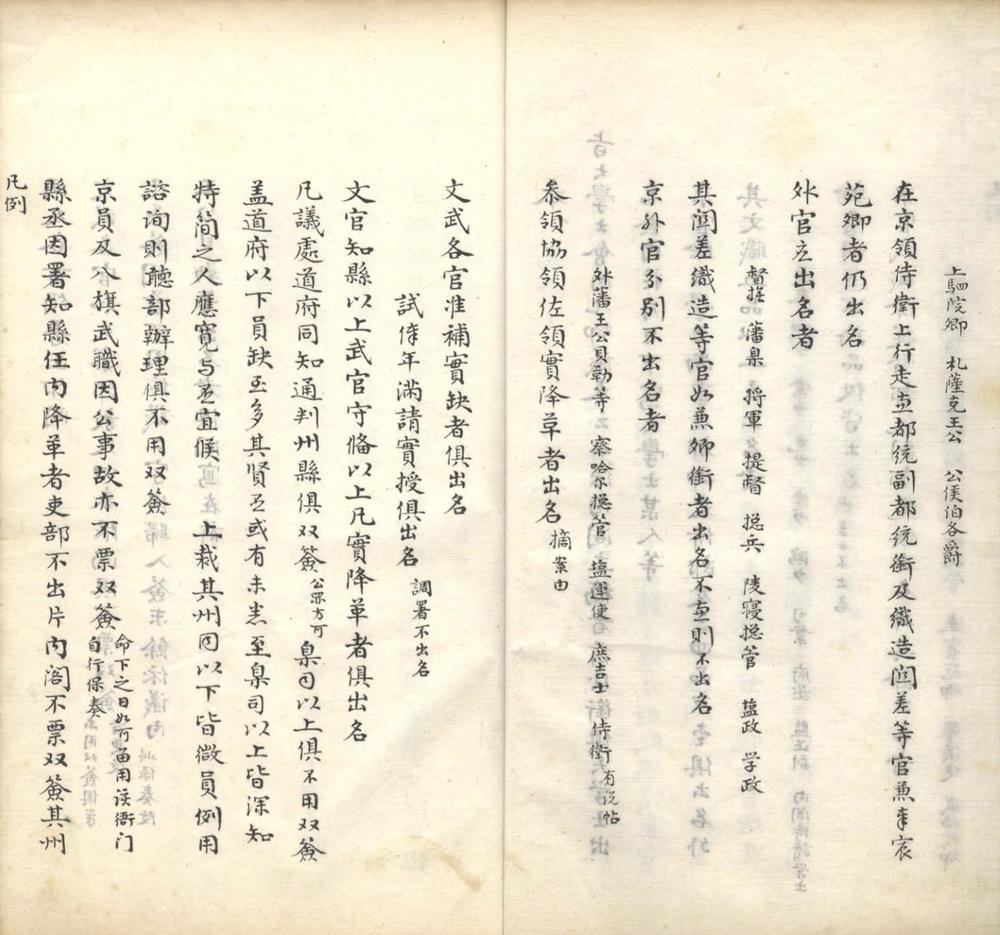 上駟院卿 札薩克王公 公侯伯各爵
在京領侍衛上行走並都統副都統銜及織造關差等官兼奉宸
苑卿者仍出名
外官應出名者
督撫 藩臬 將軍 提督 捴兵 陵寢捴管 塩政 学政
其關差織造等官如兼卿銜者出名不兼則不出名
京外官分別不出名者
外藩王公貝勒等 察哈尔捴管 塩運使 庶吉士 侍衛 有說帖
叅領協領佐領實降革者出名 摘案由
文武各官准補實缺者俱出名
試俸年滿請實授俱出名 調署不出名
文官知縣以上武官守俻以上凡實降革者俱出名
凡議處道府同知通判州縣俱双簽 公罪方可 臬司以上俱不用双簽
盖道府以下員缺至多其賢否或有未悉至臬司以上皆深知
特简之人應寬与否宜候 上裁其州同以下皆微員例用
諮询則聽部辦理俱不用双簽
京員及八旗武職因公事故亦不票双簽 命下之日如可畱用該衙门
自行保奏
縣丞因署知縣任内降革者吏部不出片内閣不票双簽其州
凡例